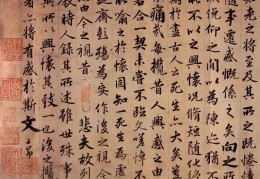 老之將至及其所之既惓情
隨事遷感慨係之矣向之所
俛仰之間以為陳迹猶不
能不以之興懷況脩短隨化
於盡古人云死生亦大矣豈
痛哉每攬昔人興感之由
合一契未嘗不臨文嗟悼不
喻之於懷固知一死生為虛
齊彭殤為妄作後之視
由今之視昔悲夫故列
時人錄其所述雖世殊事
所以興懷其致一也後之攬
者亦將有感於斯文